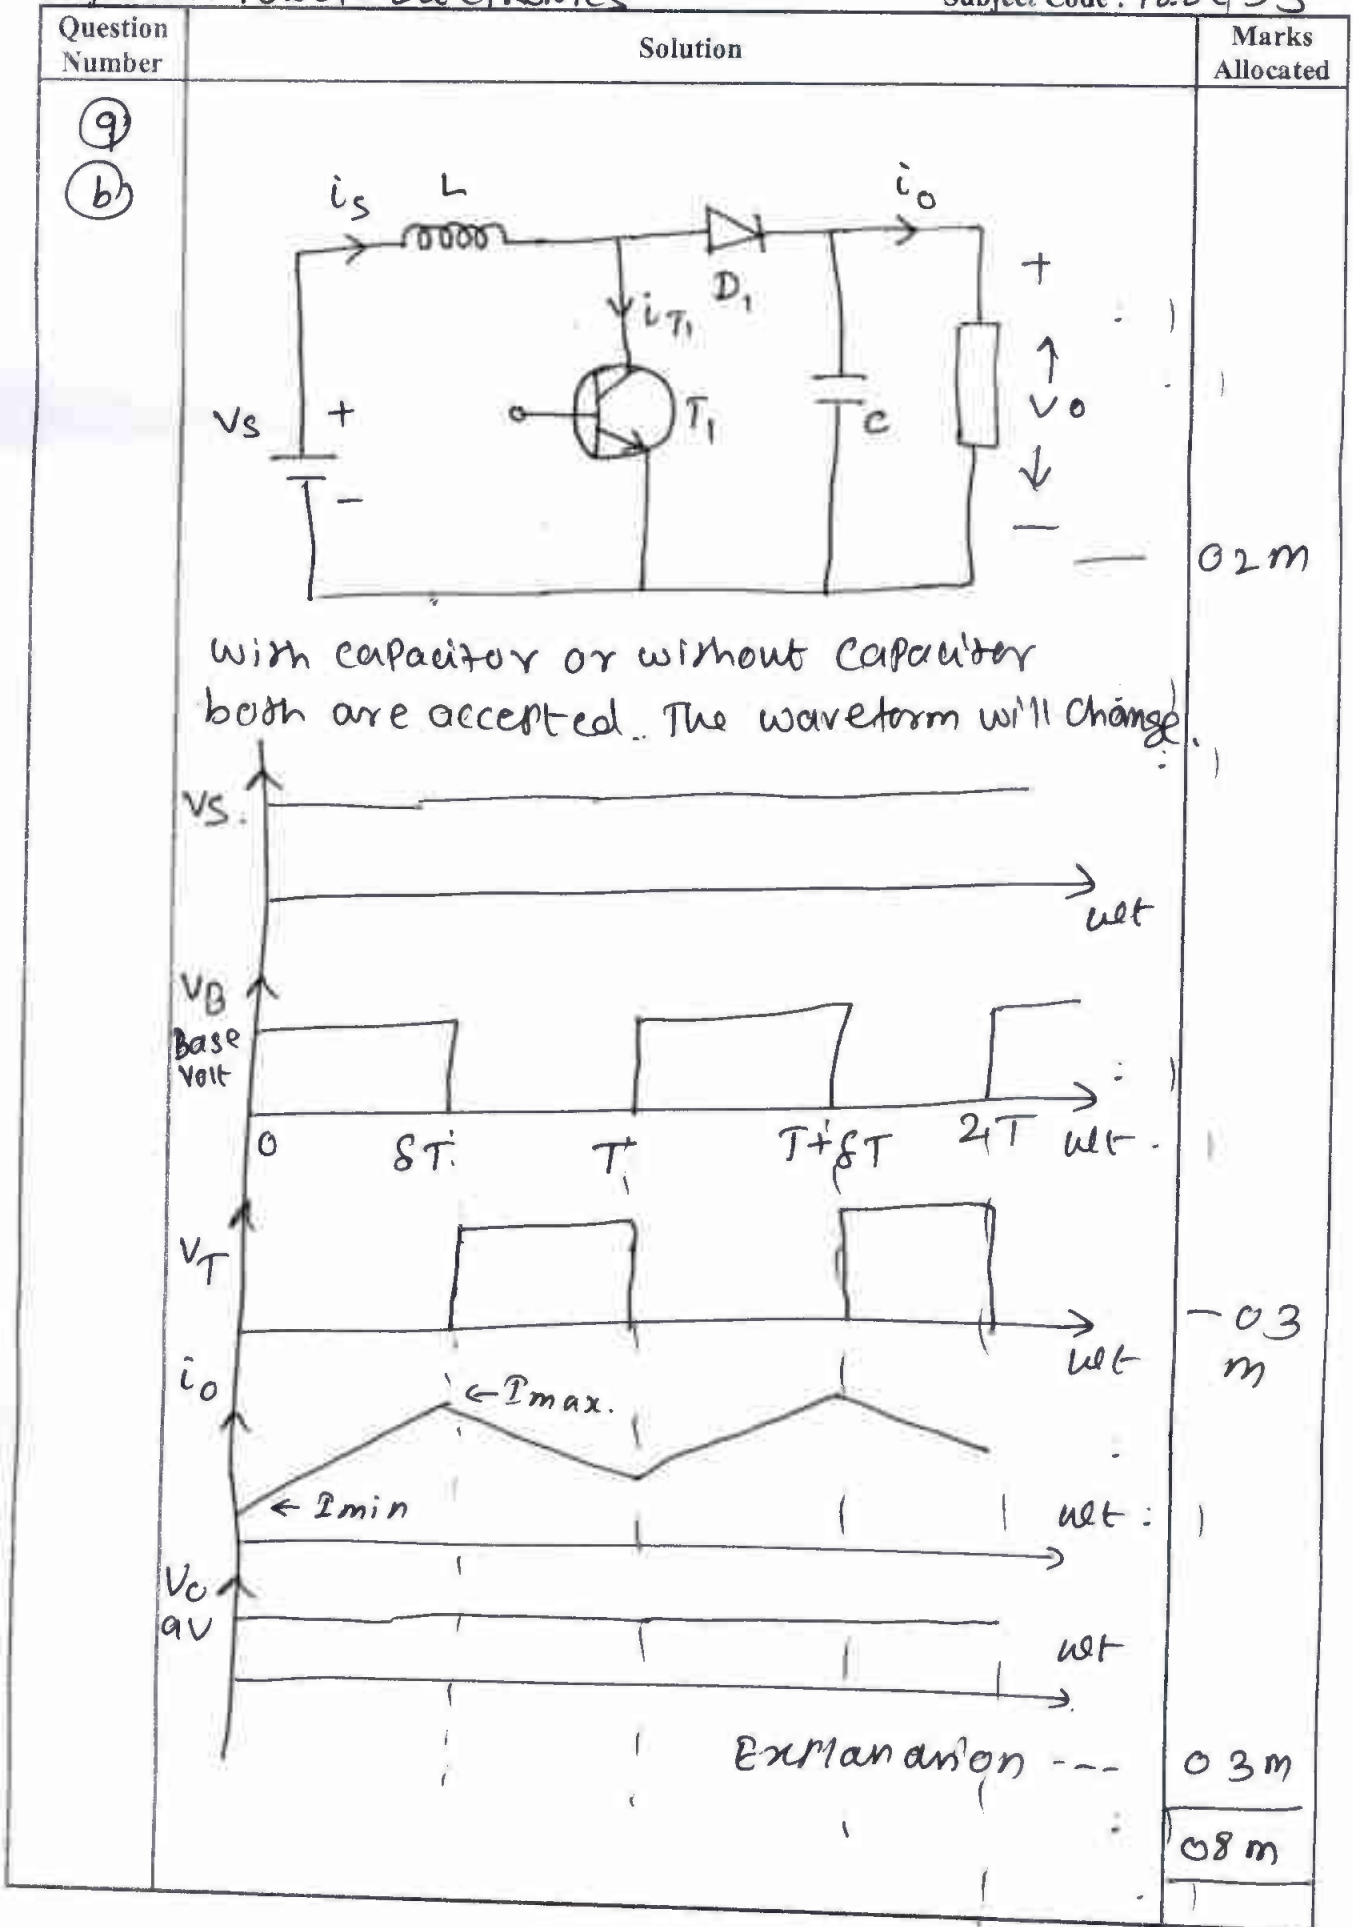 Power Electronics
Subject Code :
Question Number
Solution
Marks Allocated
9
b
is L io
D1
iT1
+
Vs + T1 C Vo
-
-
02 m
With capacitor or without capacitor
both are accepted. The waveform will change.
Vs.
wt
VB
Base
Volt
0 δT T T+δT 2T wt
VT
wt
- 03
m
io
← Imax.
← Imin
wt
Vo
av
wt
Explanation --- 03 m
08 m